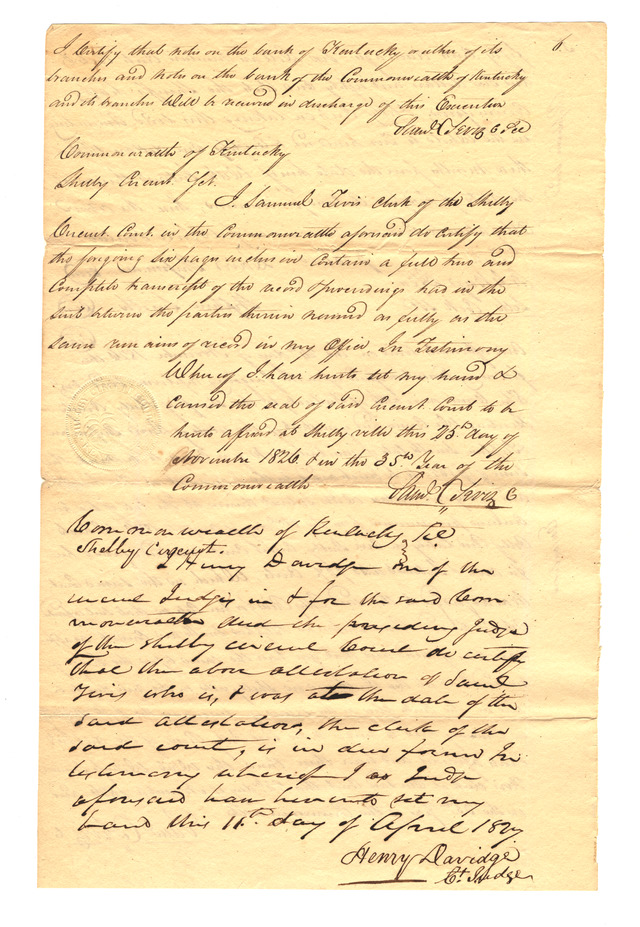 6
I Certify that notes on the bank of Kentucky or either of its
branches and notes on the bank of the Commonwealth of Kentucky
and its branches Will be received in discharge of this Execution
Saml Tevis C Sc
Commonwealth of Kentucky
Shelby Circuit Sct.
I Samuel Tevis clerk of the Shelby
Circuit Court in the Commonwealth aforesaid do certify that
the foregoing six pages inclusive contain a full true and
Complete transcript of the record & proceedings had in the
suit between the parties therein named as fully as the
same remains of record in my Office. In Testimony
Whereof I have hereto set my hand &
caused the seal of said Circuit Court to be
hereto affixed at Shelbyville this 25th day of
November 1826 & in the 35th Year of the
Commonwealth
Saml Tevis C
Commonwealth of Kentucky
Shelby Circuit. } Sct
I Henry Davidge one of the
circuit Judges in & for the said Com
monwealth and the presiding Judge
of the Shelby circuit Court do certify
that the above attestation of Saml
Tevis who is, & was at the date of the
said attestation, the clerk of the
said court, is in due form In
testimony whereof I as Judge
aforesaid have hereunto set my
hand this 11th day of April 1827
Henry Davidge
Ct Judge